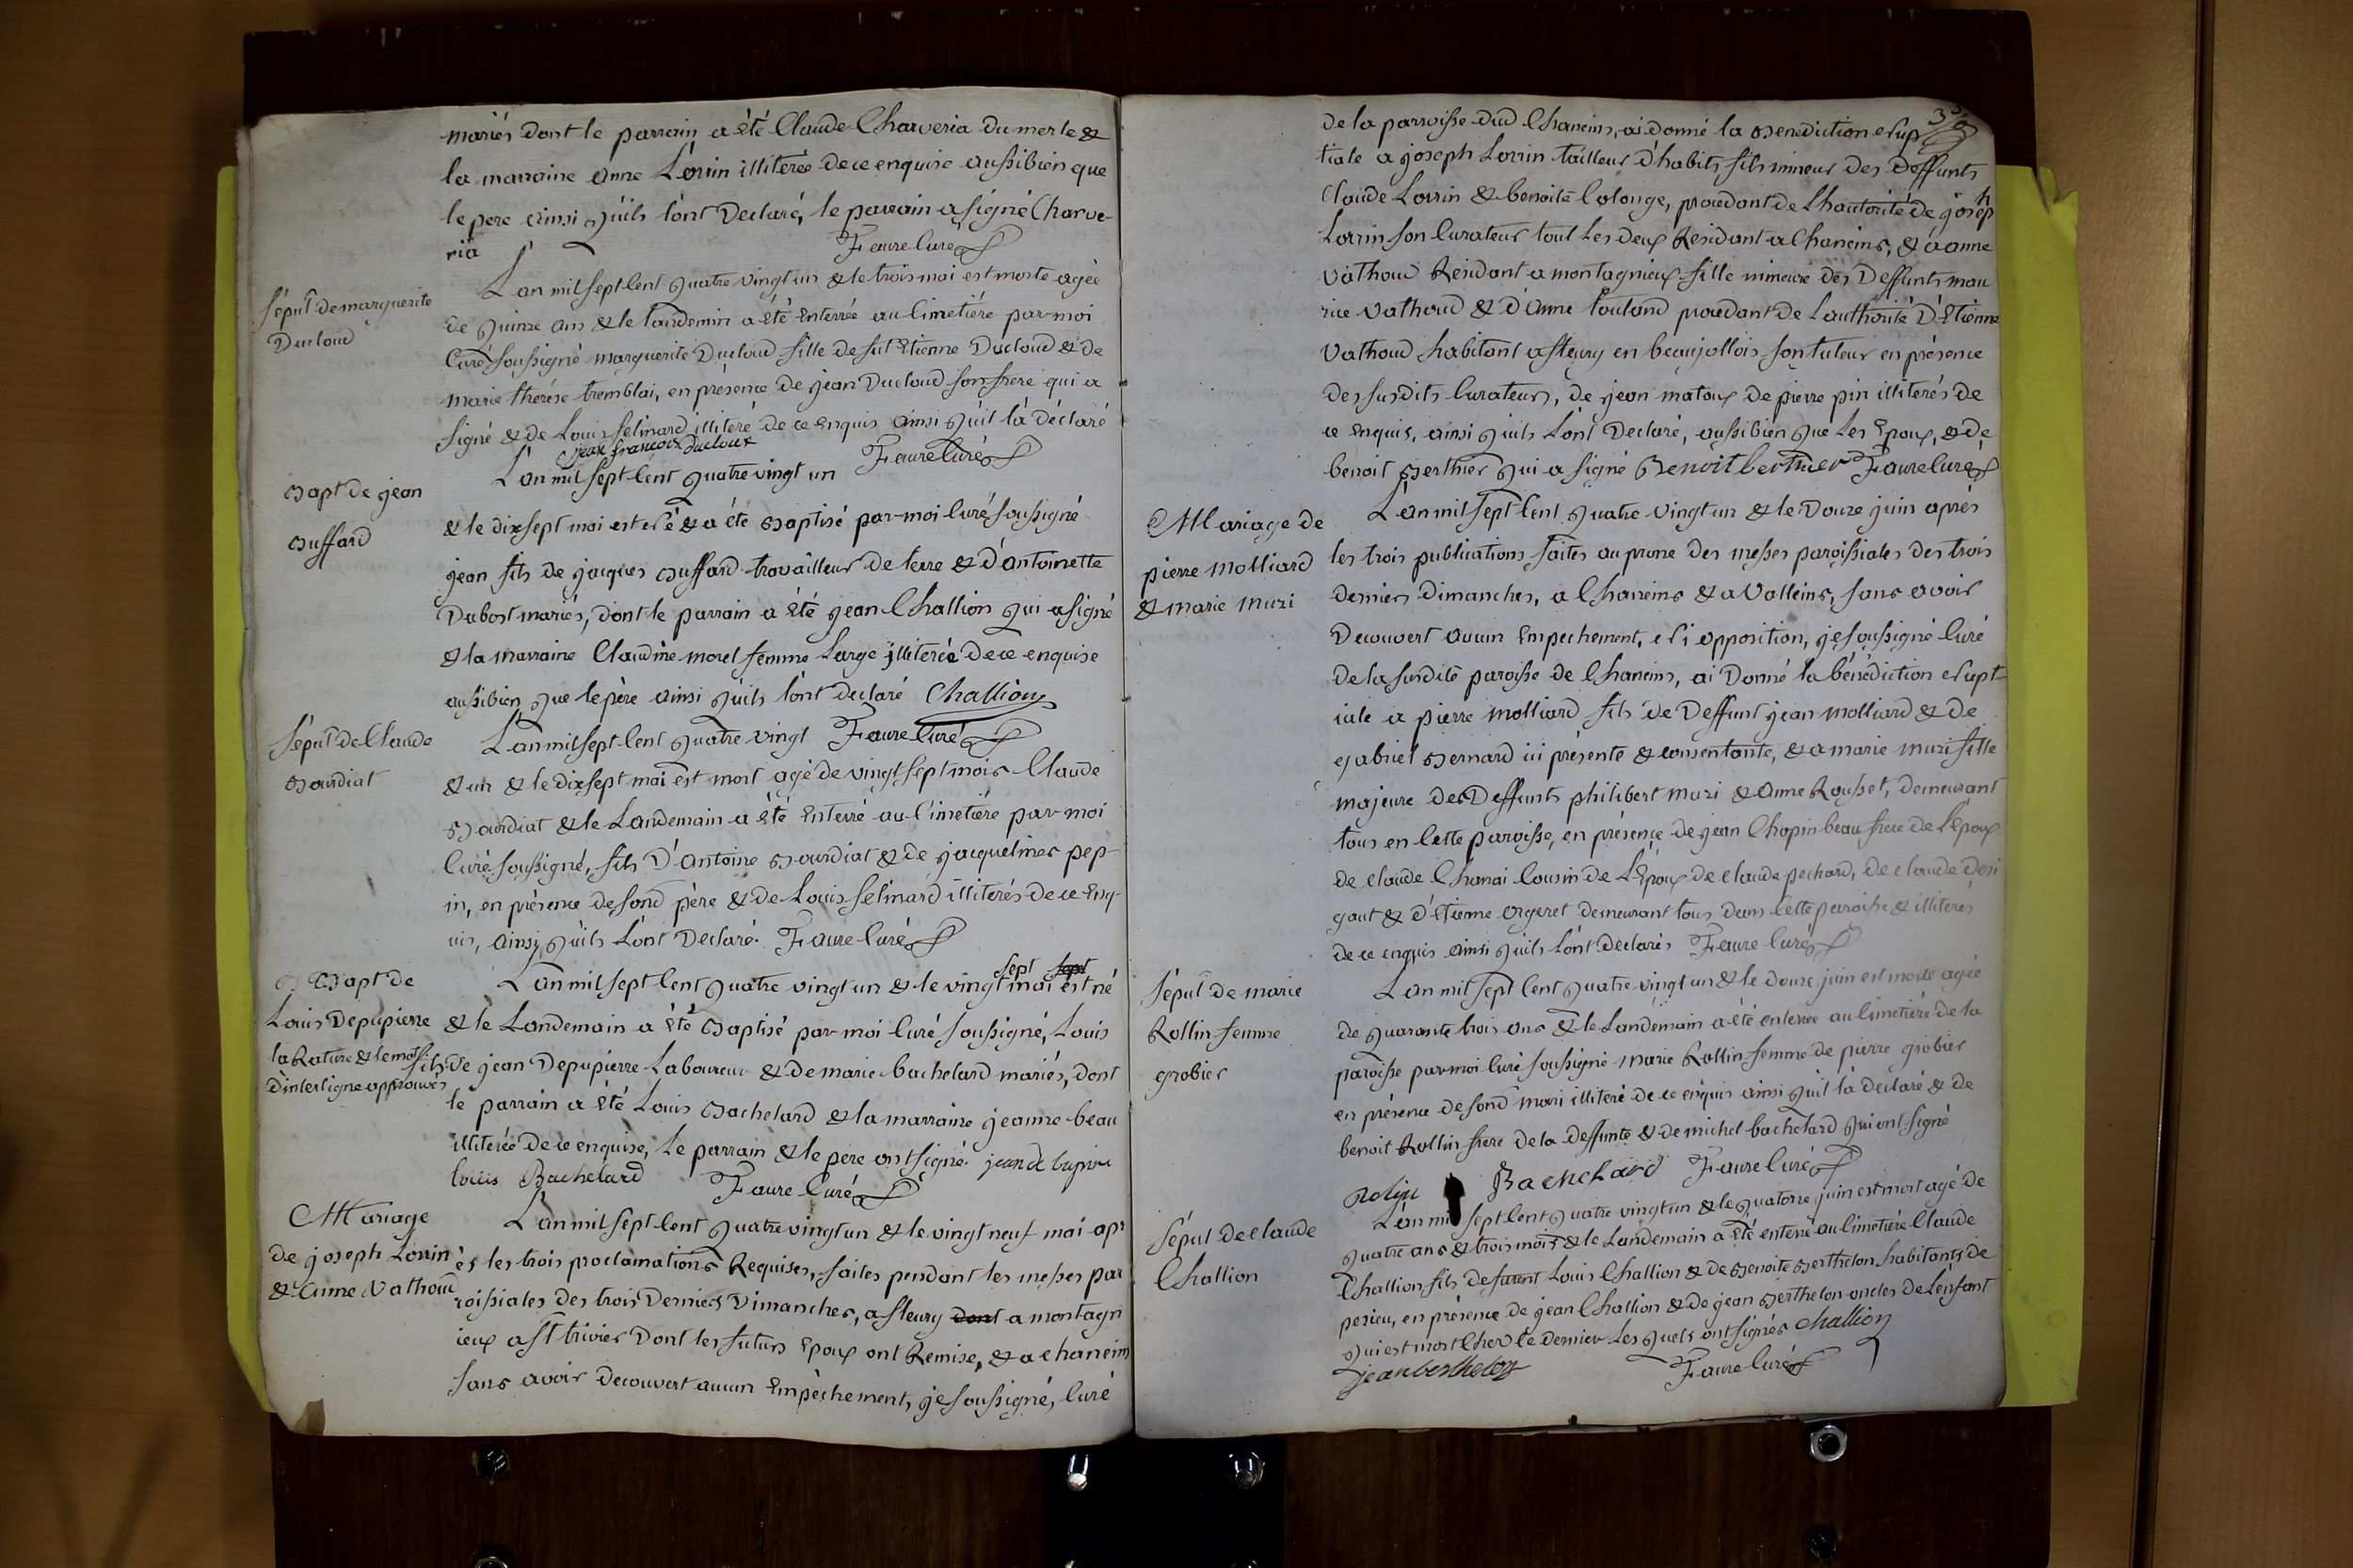 mariés dont le parrain a été Claude Charveria du merle &
la marraine anne Lorin illiterée de ce enquise aussibien que
le pere ainsi qu'ils l'ont Declaré, le parrain a signé Charve-
ria Faure Curé
sépult de marguerite
Ducloud
L'an mil sept Cent quatre vingt un & le trois mai est morte agée
de quinze ans & le landemin a été Enterrée au Cimetiére par moi
Curé soussigné marguerite Ducloud fille de fut Etienne Ducloud & de
marie thérése tremblai, en présence de jean Ducloud son frere qui a
signé & de Louis felinard illiteré de ce enquis ainsi qu'il l'a déclaré
jean françois Ducloux Faure Curé
Bapt de jean
Buffard
L'an mil sept Cent quatre vingt un
& le dix sept mai est né & a été Baptisé par moi Curé soussigné
jean fils de jacques Buffard travailleur de terre & d'antoinette
Dubost mariés, dont le parrain a été jean Challion qui a signé
& la marraine Claudine morel femme Large illiterée de ce enquise
aussibien que le père ainsi qu'ils l'ont declaré Challion
Sépult de Claude
Bardiat
L'an mil sept Cent quatre vingt Faure Curé
& un & le dix sept mai est mort agé de vingt sept mois Claude
Bourdiat & le Landemain a été Enterré au Cimetiére par moi
Curé soussigné, fils D'antoine Bourdiat & de jacqueline pep-
in, en présence de sond père & de Louis felinard illiterés de ce Enq-
uis, ainsi qu'ils L'ont Declaré. Faure Curé
Bapt de
Louis Depupierre
la Rature & le mot
d'interligne approuvés
sept sept
L'an mil sept Cent quatre vingt un & le vingt mai est né
& le Landemain a été Baptisé par moi Curé soussigné, Louis
fils de jean Depupierre Laboureur & de marie bachelard mariés, dont
le parrain a été Louis Bachelard & la marraine jeanne beau
illiterée de ce enquise, Le parrain & le pere ont signé.
louis Bachelard Faure Curé
Mariage
de joseph Lorrin
& Anne Vathoud
L'an mil sept Cent quatre vingt un & le vingt neuf mai apr
ès les trois proclamations Requises, faites pendant les messes par
roissiales des trois Derniers Dimanches, a fleury dont a montagn
ieux a st trivier Dont les futurs Epoux ont Remise, & a chaneins
sans avoir decouvert aucun Empèchement, je soussigné, Curé
de la parroisse dud Chaneins, ai donné la Benediction nup
tiale a joseph Lorrin tailleur d'habits fils mineur des Deffunts
Claude Lorrin & benoite Colonge, procedant de L'hautorité de joseph
Lorrin son Curateur tout Les deux Residant a Chaneins, & a anne
vathoud Residant a montagnieux fille mineure des Deffunts mau
rice vathoud & d'anne toutand procedant de L'authorité D'Etienne
Vathoud habitant a fleury en beaujollois son tuteur en présence
des susdits Curateurs, de jean matoux de pierre pin illiterés de
ce Enquis, ainsi qu'ils L'ont Declaré, aussibien que Les Epoux, & de
benoit Berthier qui a signé Benoit berthier Faure Curé
Mariage de
pierre Molliard
& marie muzi
L'an mil sept Cent quatre vingt un & le Douze juin aprés
les trois publications faites au prone des messes paroissiales des trois
derniers Dimanches, a Chaneins & a Valleins, sans avoir
Decouvert aucun Empechement, ni opposition, je soussigné Curé
de la susdite paroisse de Chaneins, ai Donné la bénédiction nupt-
iale a pierre molliard fils de Deffunt jean molliard & de
gabriel Bernard ici présente & consentante, & a marie muzi fille
majeure des Deffunts philibert muzi & anne Rousset, demeurant
tous en Cette paroisse, en présence de jean Chapin beau frere de L'époux
de claude Chanai Cousin de L'Epoux de claude pechard, de claude desi
gaut & d'Etienne orgeret demeurant tous dans Cette paroisse & illiterés
de ce enquis ainsi qu'ils L'ont declarés Faure Curé
Sépult de marie
Rollin femme
grobier
L'an mil sept Cent quatre vingt un & le douze juin est morte agée
de quarante trois ans & le Landemain a été enterrée au Cimetiére de la
paroisse par moi Curé soussigné marie Rollin femme de pierre grobier
en présence de sond mari illiteré de ce enquis ainsi qu'il l'a declaré & de
benoit Rollin frere de la deffunte & de michel bachelard qui ont signé
Rolin Bachelard Faure Curé
Sépul de claude
Challion
L'an mil sept Cent quatre vingt un & le quatorze juin est mort agé de
quatre ans & trois mois & le Landemain a été enterré au Cimetiére Claude
Challion fils de Louis Challion & de Benoite Berthelon habitants de
perieu, en présence de jean Challion & de jean Berthelon oncles de L'enfant
qui est mort Cher le dernier Les quels ont signés challion
jean berthelon Faure Curé